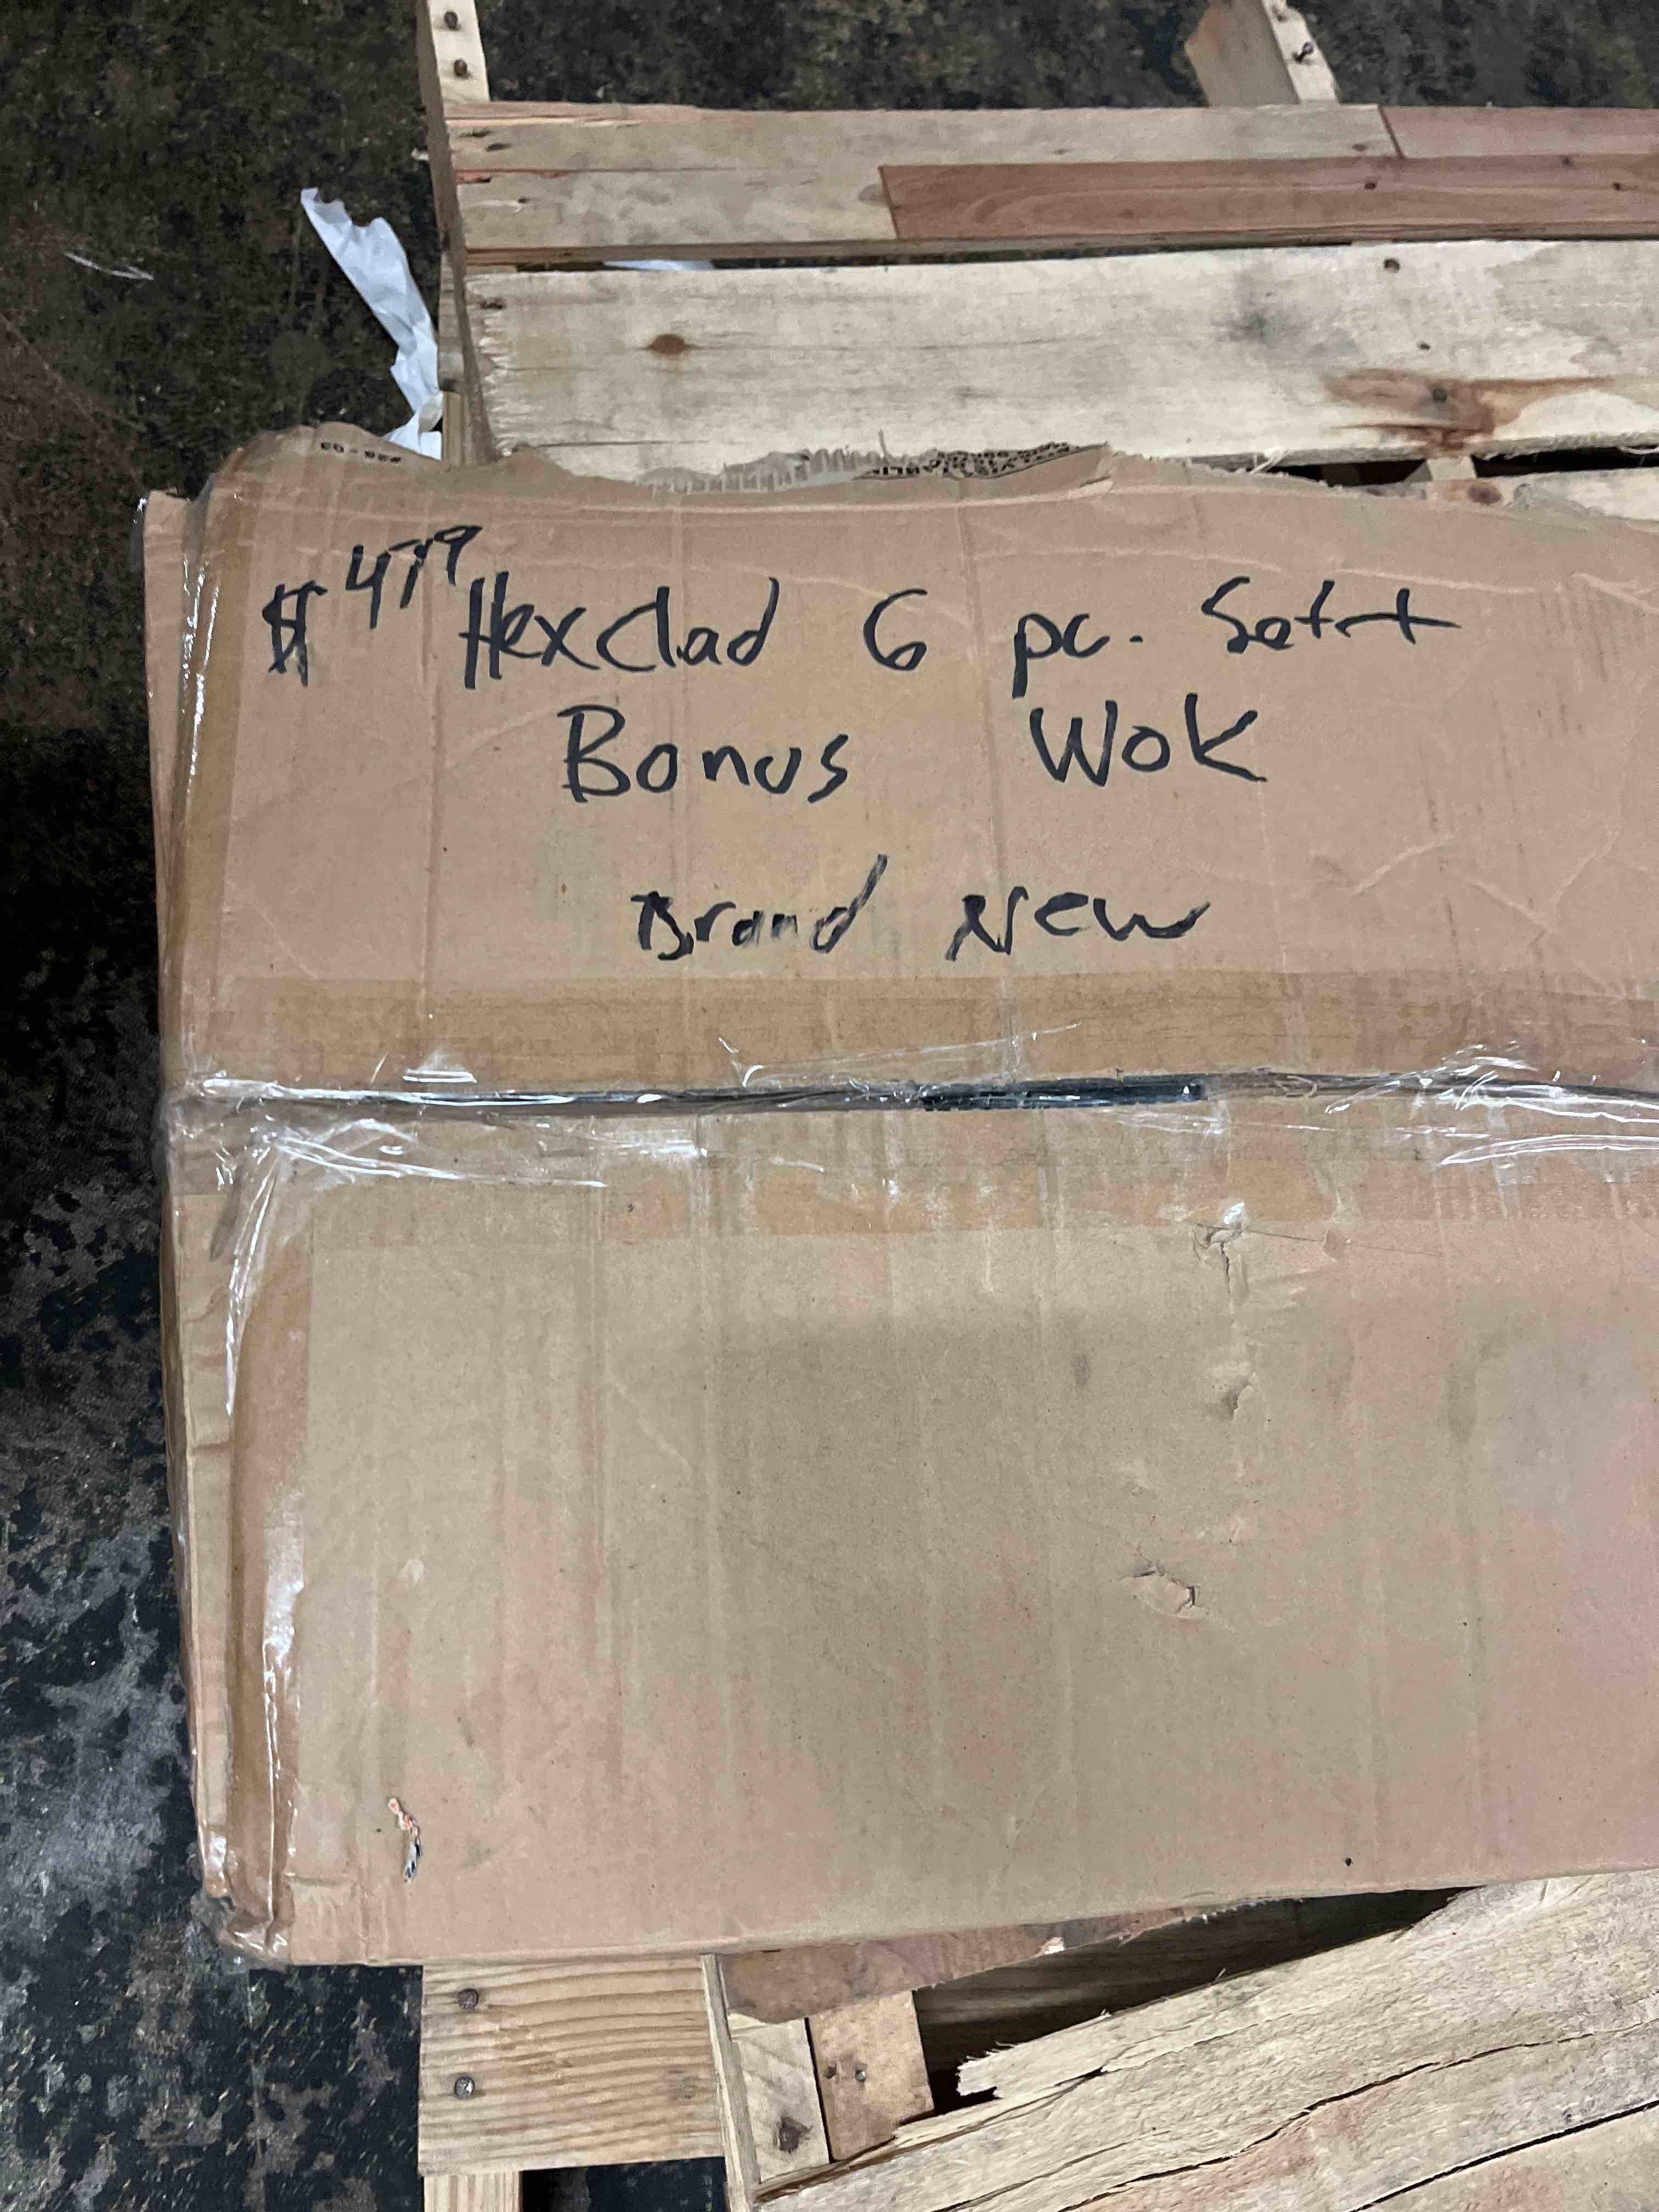 $479 Hexclad 6 pc. Set +
Bonus Wok
Brand New